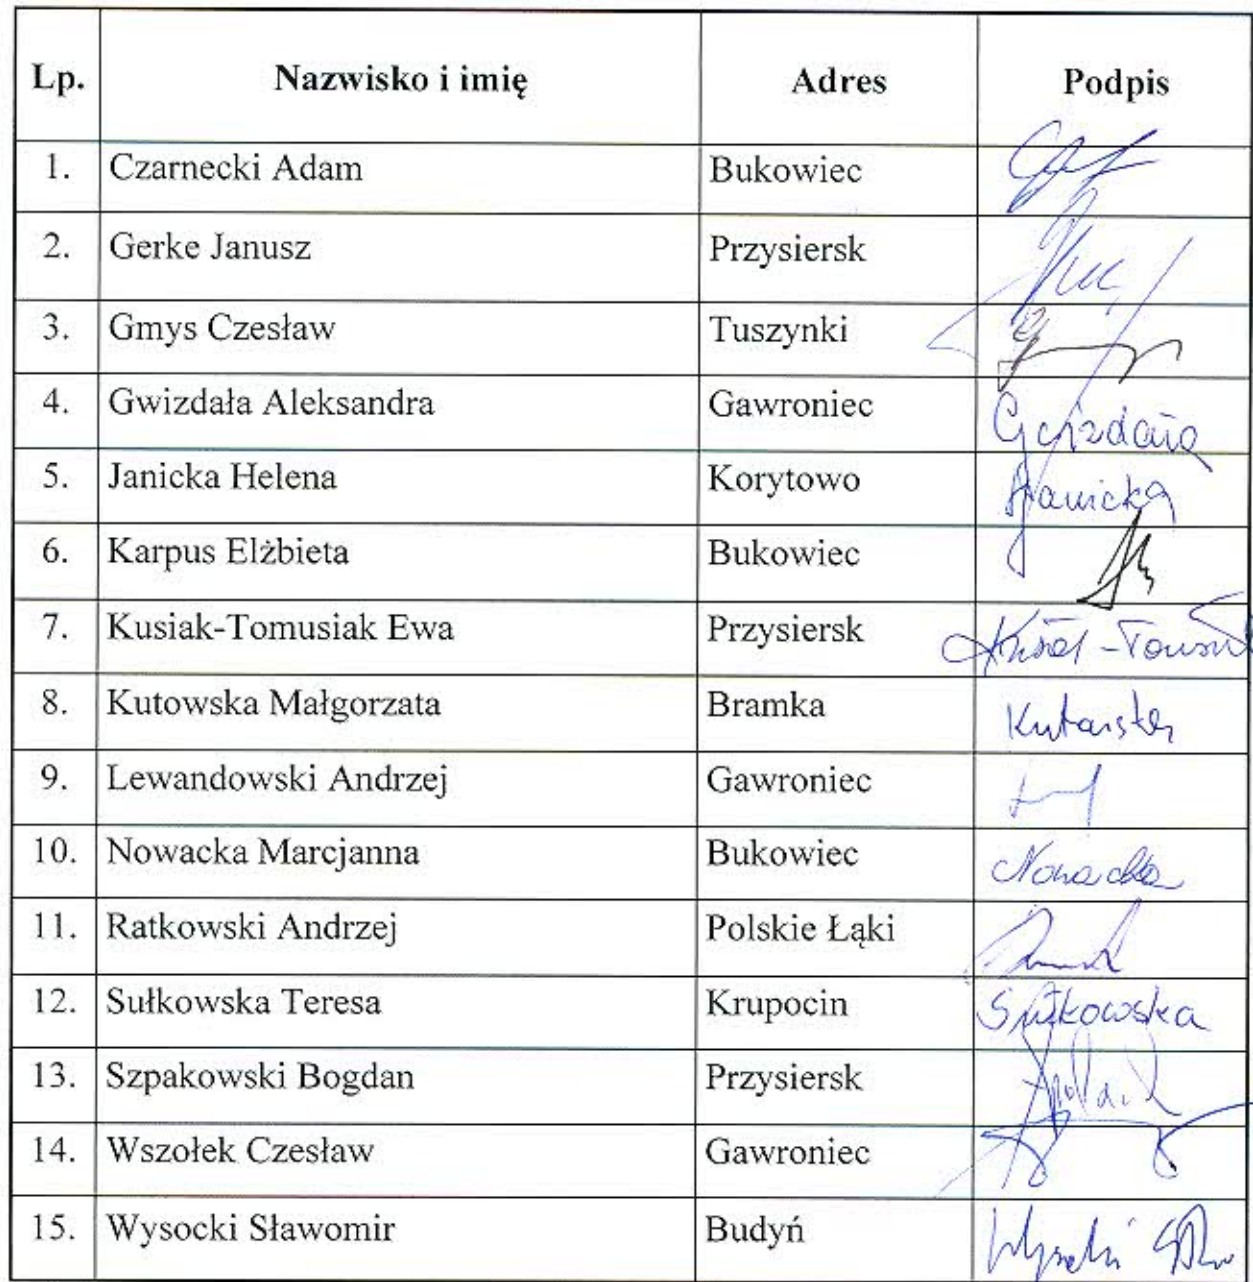 Lp. Nazwisko i imię Adres Podpis
1. Czarnecki Adam Bukowiec
2. Gerke Janusz Przysiersk
3. Gmys Czesław Tuszynki
4. Gwizdała Aleksandra Gawroniec Gwizdała
5. Janicka Helena Korytowo Janicka
6. Karpus Elżbieta Bukowiec
7. Kusiak-Tomusiak Ewa Przysiersk
8. Kutowska Małgorzata Bramka
9. Lewandowski Andrzej Gawroniec
10. Nowacka Marcjanna Bukowiec Nowacka
11. Ratkowski Andrzej Polskie Łąki
12. Sułkowska Teresa Krupocin Sułkowska
13. Szpakowski Bogdan Przysiersk
14. Wszołek Czesław Gawroniec
15. Wysocki Sławomir Budyń